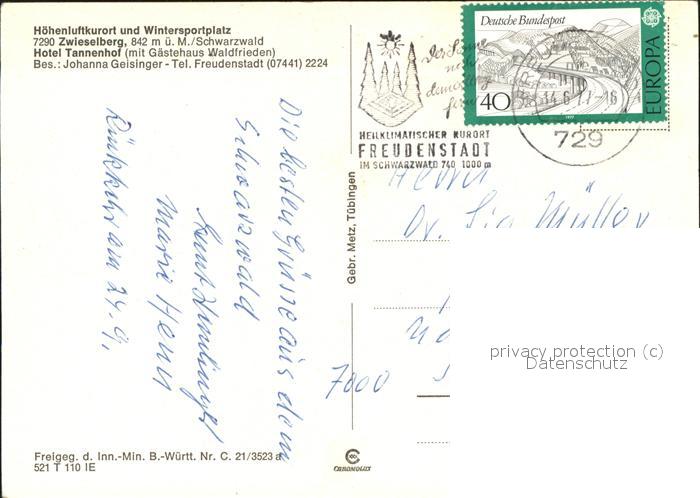 Höhenluftkurort und Wintersportplatz
7290 Zwieselberg, 842 m ü. M./Schwarzwald
Hotel Tannenhof (mit Gästehaus Waldfrieden)
Bes.: Johanna Geisinger - Tel. Freudenstadt (07441) 2224
Die besten Grüsse aus dem
Schwarzwald
Marie Henn
Rückkehr am 24. 9.
Freigeg. d. Inn.-Min. B.-Württ. Nr. C. 21/3523 a
521 T 110 IE
Gebr. Metz, Tübingen
CHROMOLUX
Der Sonne
näher
dem Alltag
fern
HEILKLIMATISCHER KURORT
FREUDENSTADT
IM SCHWARZWALD 740-1000 m
Deutsche Bundespost
40
EUROPA
729
Herrn
Dr. Müller
7000
privacy protection (c)
Datenschutz